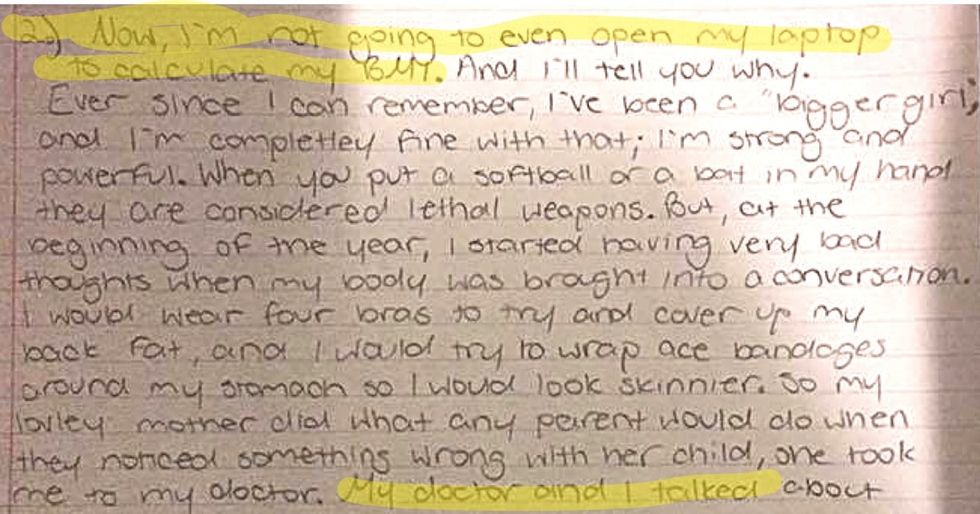 2.) Now, I'm not going to even open my laptop
to calculate my BMI. And I'll tell you why.
Ever since I can remember, I've been a "bigger girl"
and I'm completley fine with that; I'm strong and
powerful. When you put a softball or a bat in my hand
they are considered lethal weapons. But, at the
beginning of the year, I started having very bad
thoughts when my body was brought into a conversation.
I would wear four bras to try and cover up my
back fat, and I would try to wrap ace bandages
around my stomach so I would look skinnier. So my
lovley mother did what any parent would do when
they noticed something wrong with her child, she took
me to my doctor. My doctor and I talked about